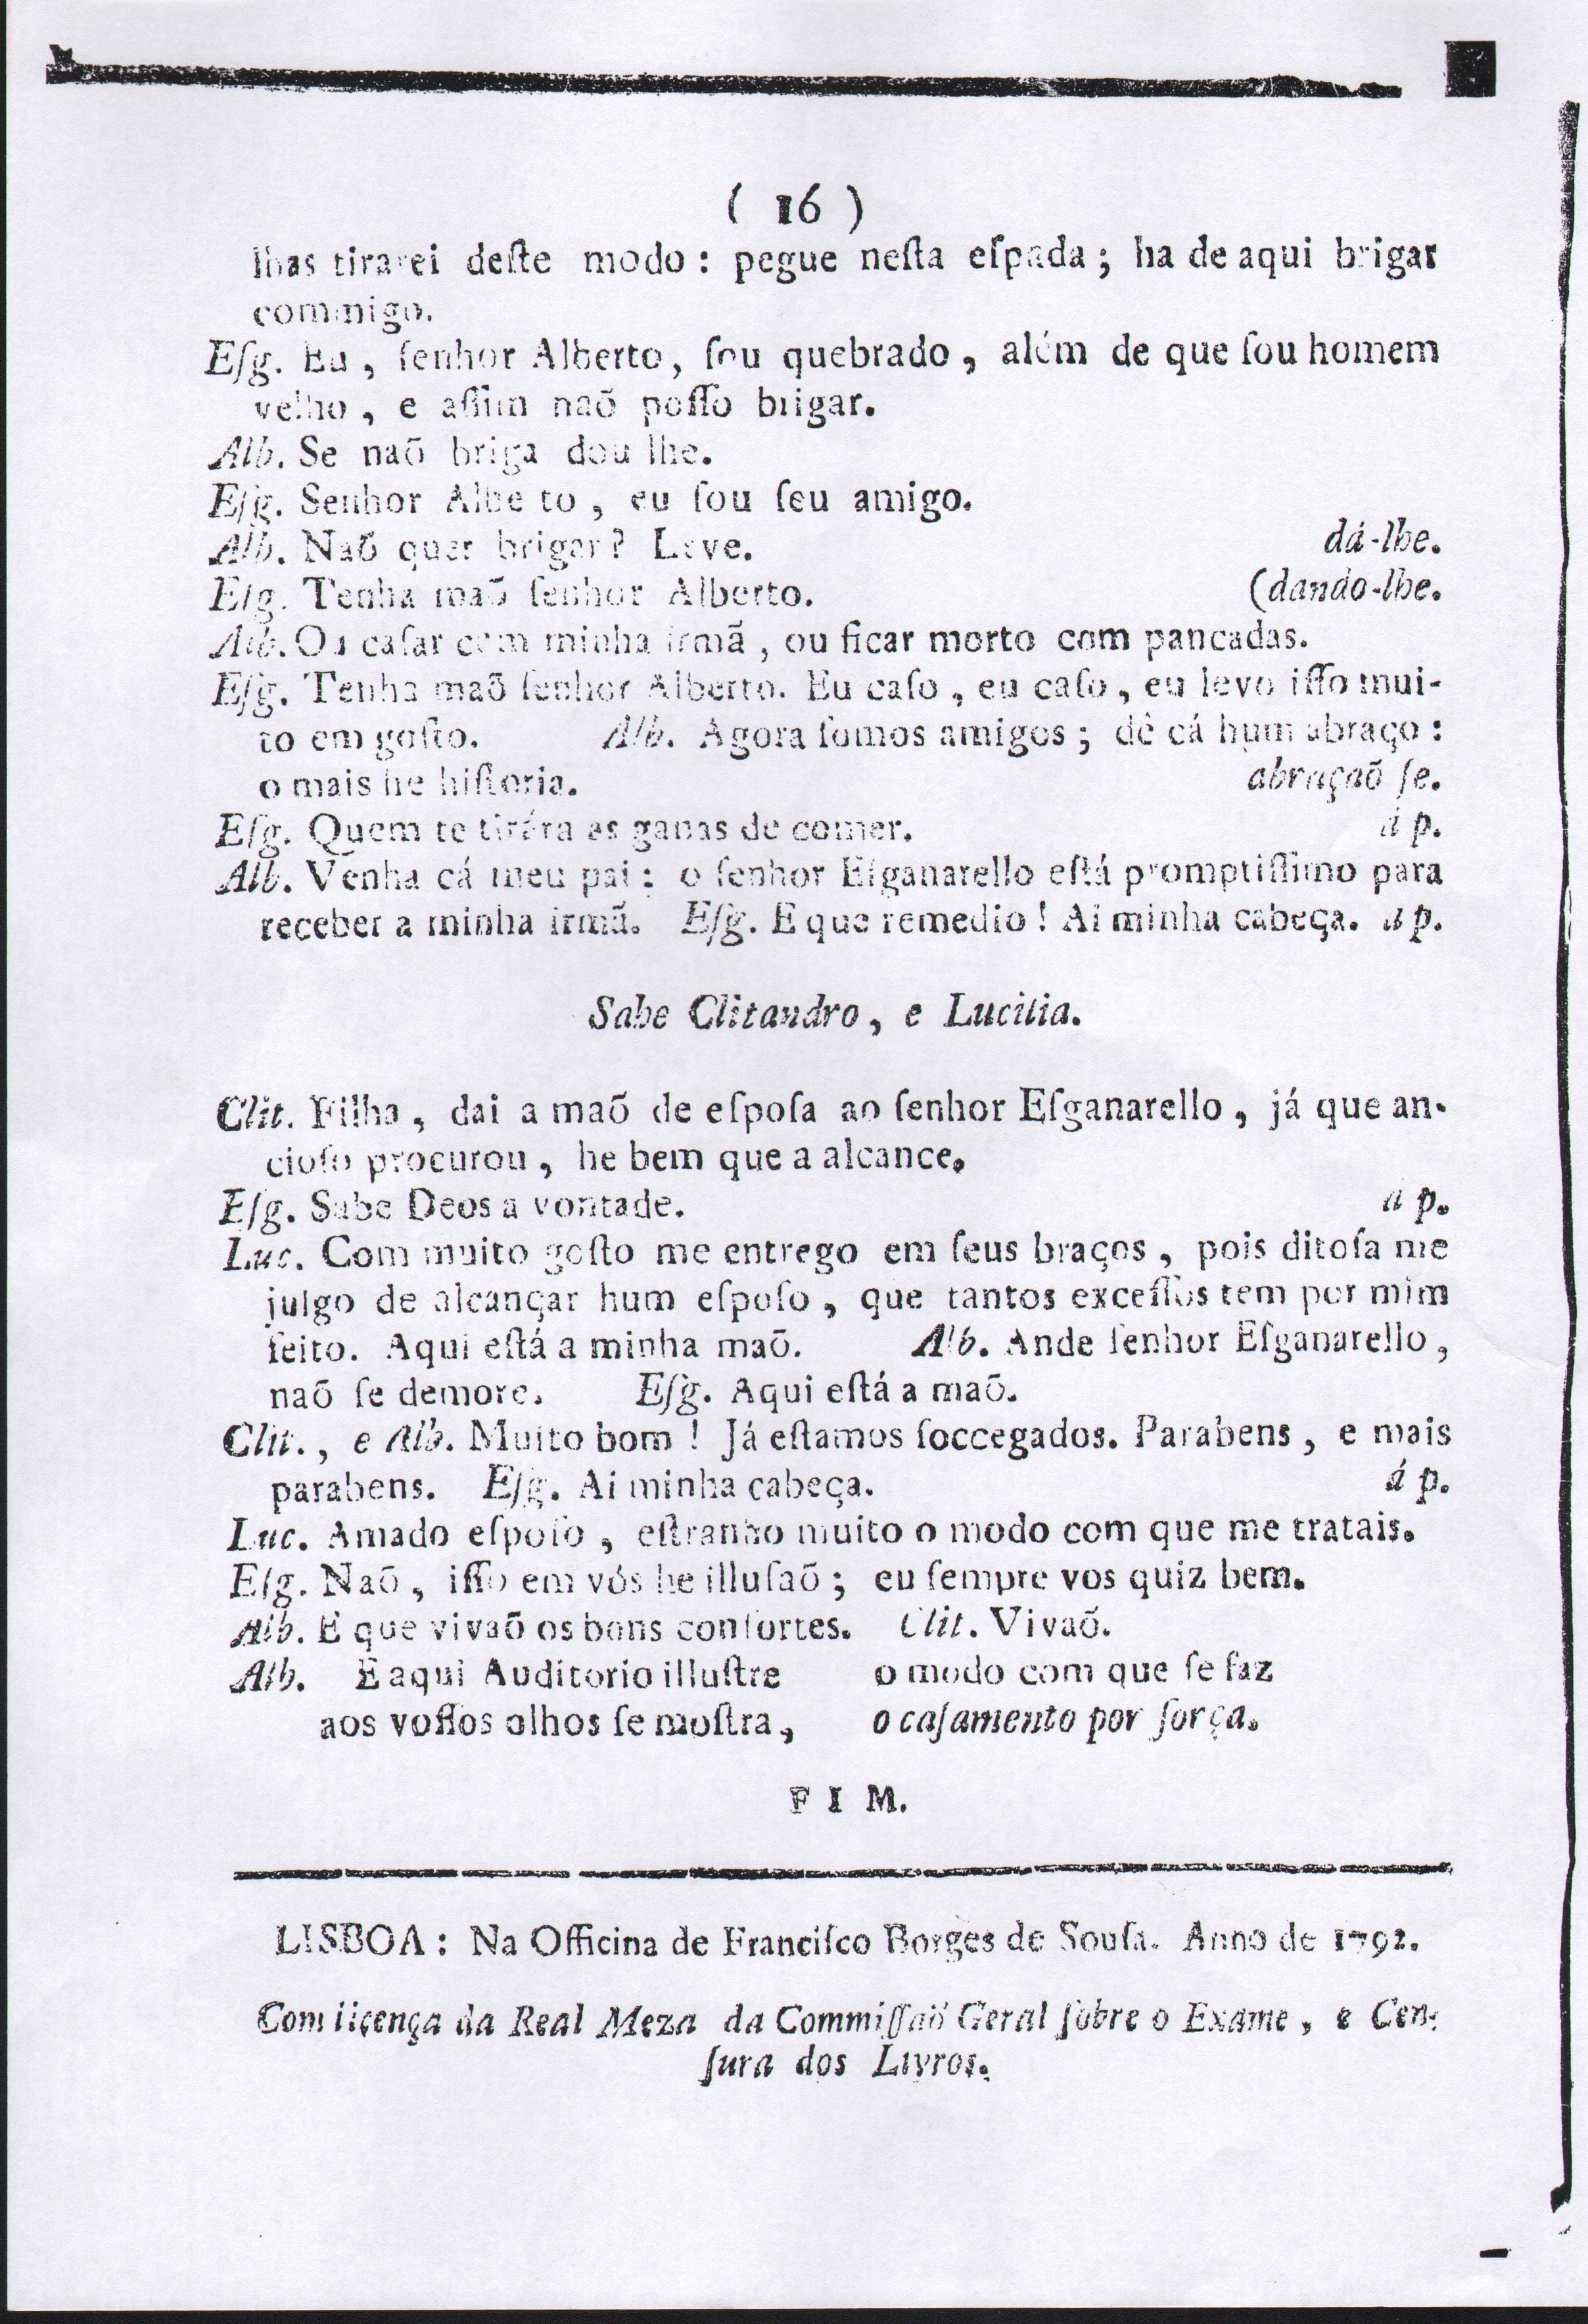 ( 16 )
lhas tirarei deſte modo : pegue neſta eſpada ; ha de aqui brigar
commigo.
Eſg. Eu , ſenhor Alberto, ſou quebrado , além de que ſou homem
velho , e aſſim naõ poſſo brigar.
Alb. Se naõ briga dou lhe.
Eſg. Senhor Albe to , eu ſou ſeu amigo.
Alb. Naõ quer brigar ? Leve. dá-lhe.
Eſg. Tenha maõ ſenhor Alberto. (dando-lhe.
Alb. Ou caſar com minha irmã , ou ficar morto com pancadas.
Eſg. Tenha maõ ſenhor Alberto. Eu caſo , eu caſo , eu levo iſſo mui-
to em goſto. Alb. Agora ſomos amigos ; dê cá hum abraço :
o mais he hiſtoria. abraçaõ ſe.
Eſg. Quem te tirára as ganas de comer. á p.
Alb. Venha cá meu pai : o ſenhor Eſganarello eſtá promptiſſimo para
receber a minha irmã. Eſg. E que remedio ! Ai minha cabeça. á p.
Sahe Clitandro , e Lucilia.
Clit. Filha , dai a maõ de eſpoſa ao ſenhor Eſganarello , já que an-
cioſo procurou , he bem que a alcance.
Eſg. Sabe Deos a vontade. á p.
Luc. Com muito goſto me entrego em ſeus braços , pois ditoſa me
julgo de alcançar hum eſpoſo , que tantos exceſſos tem por mim
feito. Aqui eſtá a minha maõ. Alb. Ande ſenhor Eſganarello ,
naõ ſe demore. Eſg. Aqui eſtá a maõ.
Clit. , e Alb. Muito bom ! Já eſtamos ſoccegados. Parabens , e mais
parabens. Eſg. Ai minha cabeça. á p.
Luc. Amado eſpoſo , eſtranho muito o modo com que me tratais.
Eſg. Naõ , iſſo em vós he illuſaõ ; eu ſempre vos quiz bem.
Alb. E que vivaõ os bons conſortes. Clit. Vivaõ.
Alb. E aqui Auditorio illuſtre o modo com que ſe faz
aos voſſos olhos ſe moſtra , o caſamento por força.
F I M.
LISBOA : Na Officina de Franciſco Borges de Souſa. Anno de 1792.
Com licença da Real Meza da Commiſſaõ Geral ſobre o Exame , e Cen-
ſura dos Livros.